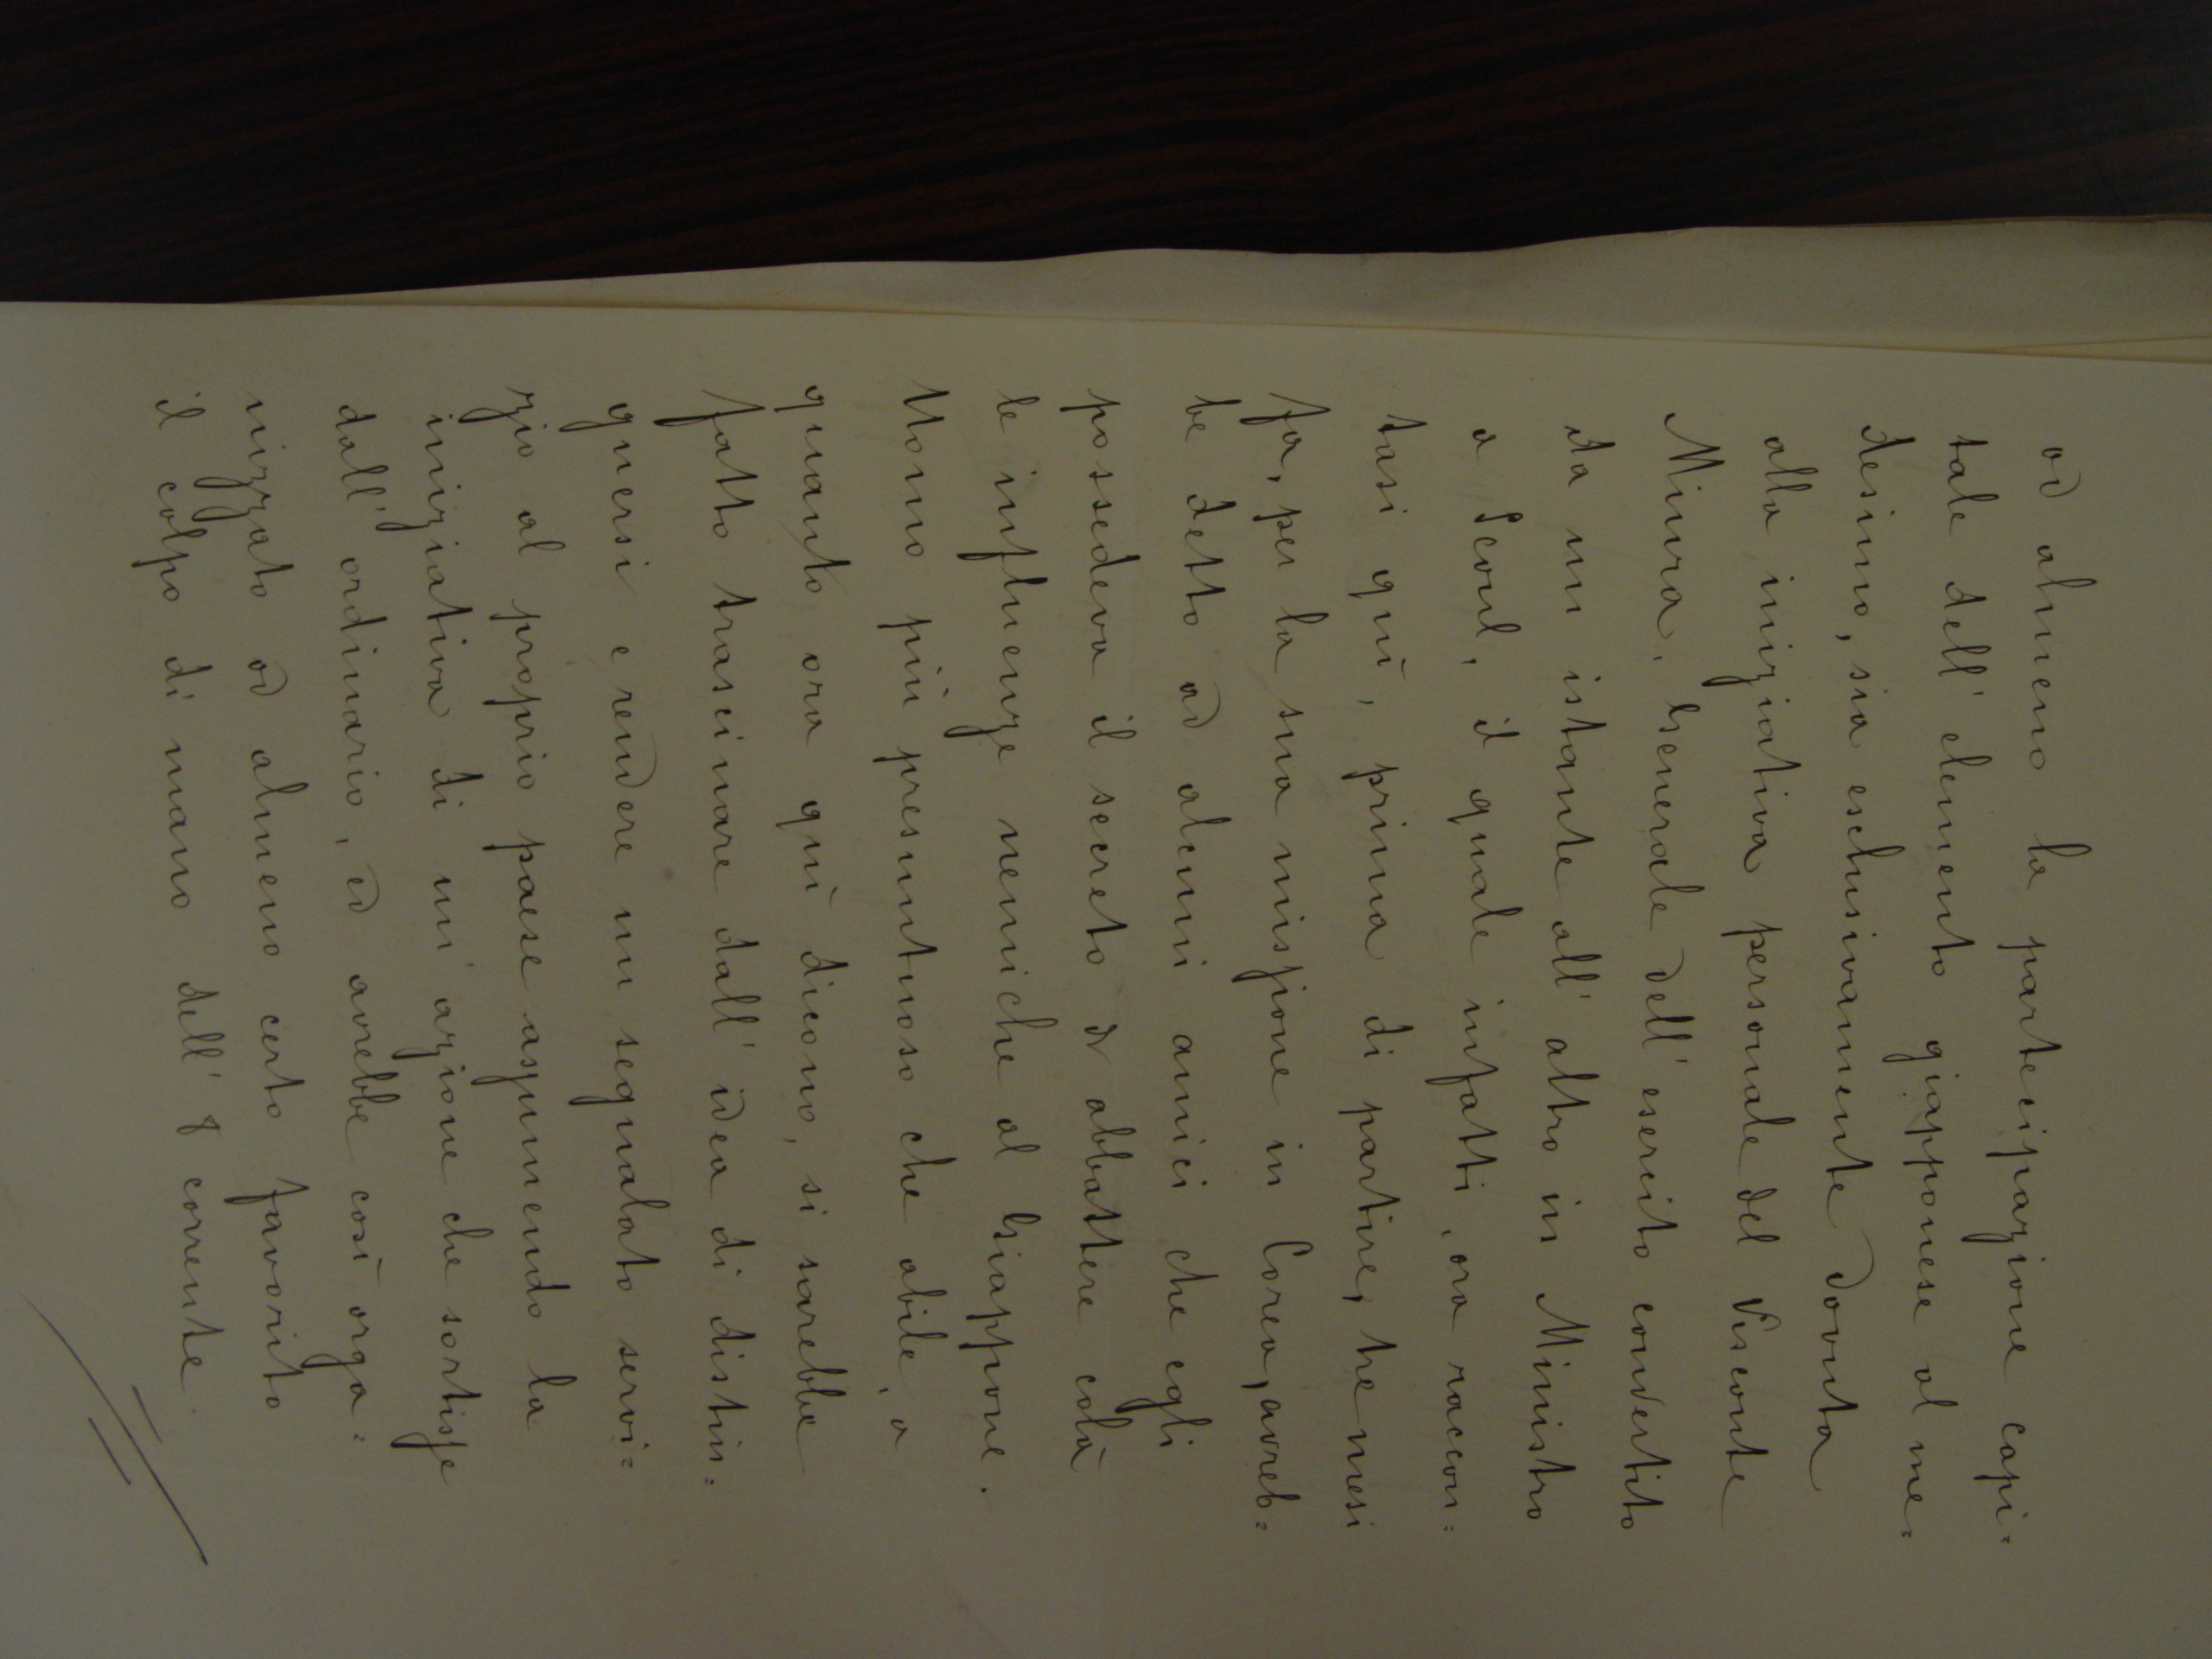 od almeno la partecipazione capi=
tale dell' elemento giapponese al me=
desimo, sia esclusivamente dovuta
alla iniziativa personale del Visconte
Miura, Generale dell' esercito convertito
da un istante all' altro in Ministro
a Seoul, il quale infatti, ora raccon=
tasi quì, prima di partire, tre mesi
fa, per la sua missione in Corea, avreb=
be detto ad alcuni amici che egli
possedeva il secreto di abbattere colà
le influenze nemiche al Giappone.
Uomo più presuntuoso che abile, a
quanto ora quì dicono, si sarebbe
fatto trascinare dall' idea di distin=
guersi e rendere un segnalato servi=
zio al proprio paese assumendo la
iniziativa di un' azione che sortisse
dall' ordinario, ed avrebbe così orga=
nizzato od almeno certo favorito
il colpo di mano dell' 8 corrente.